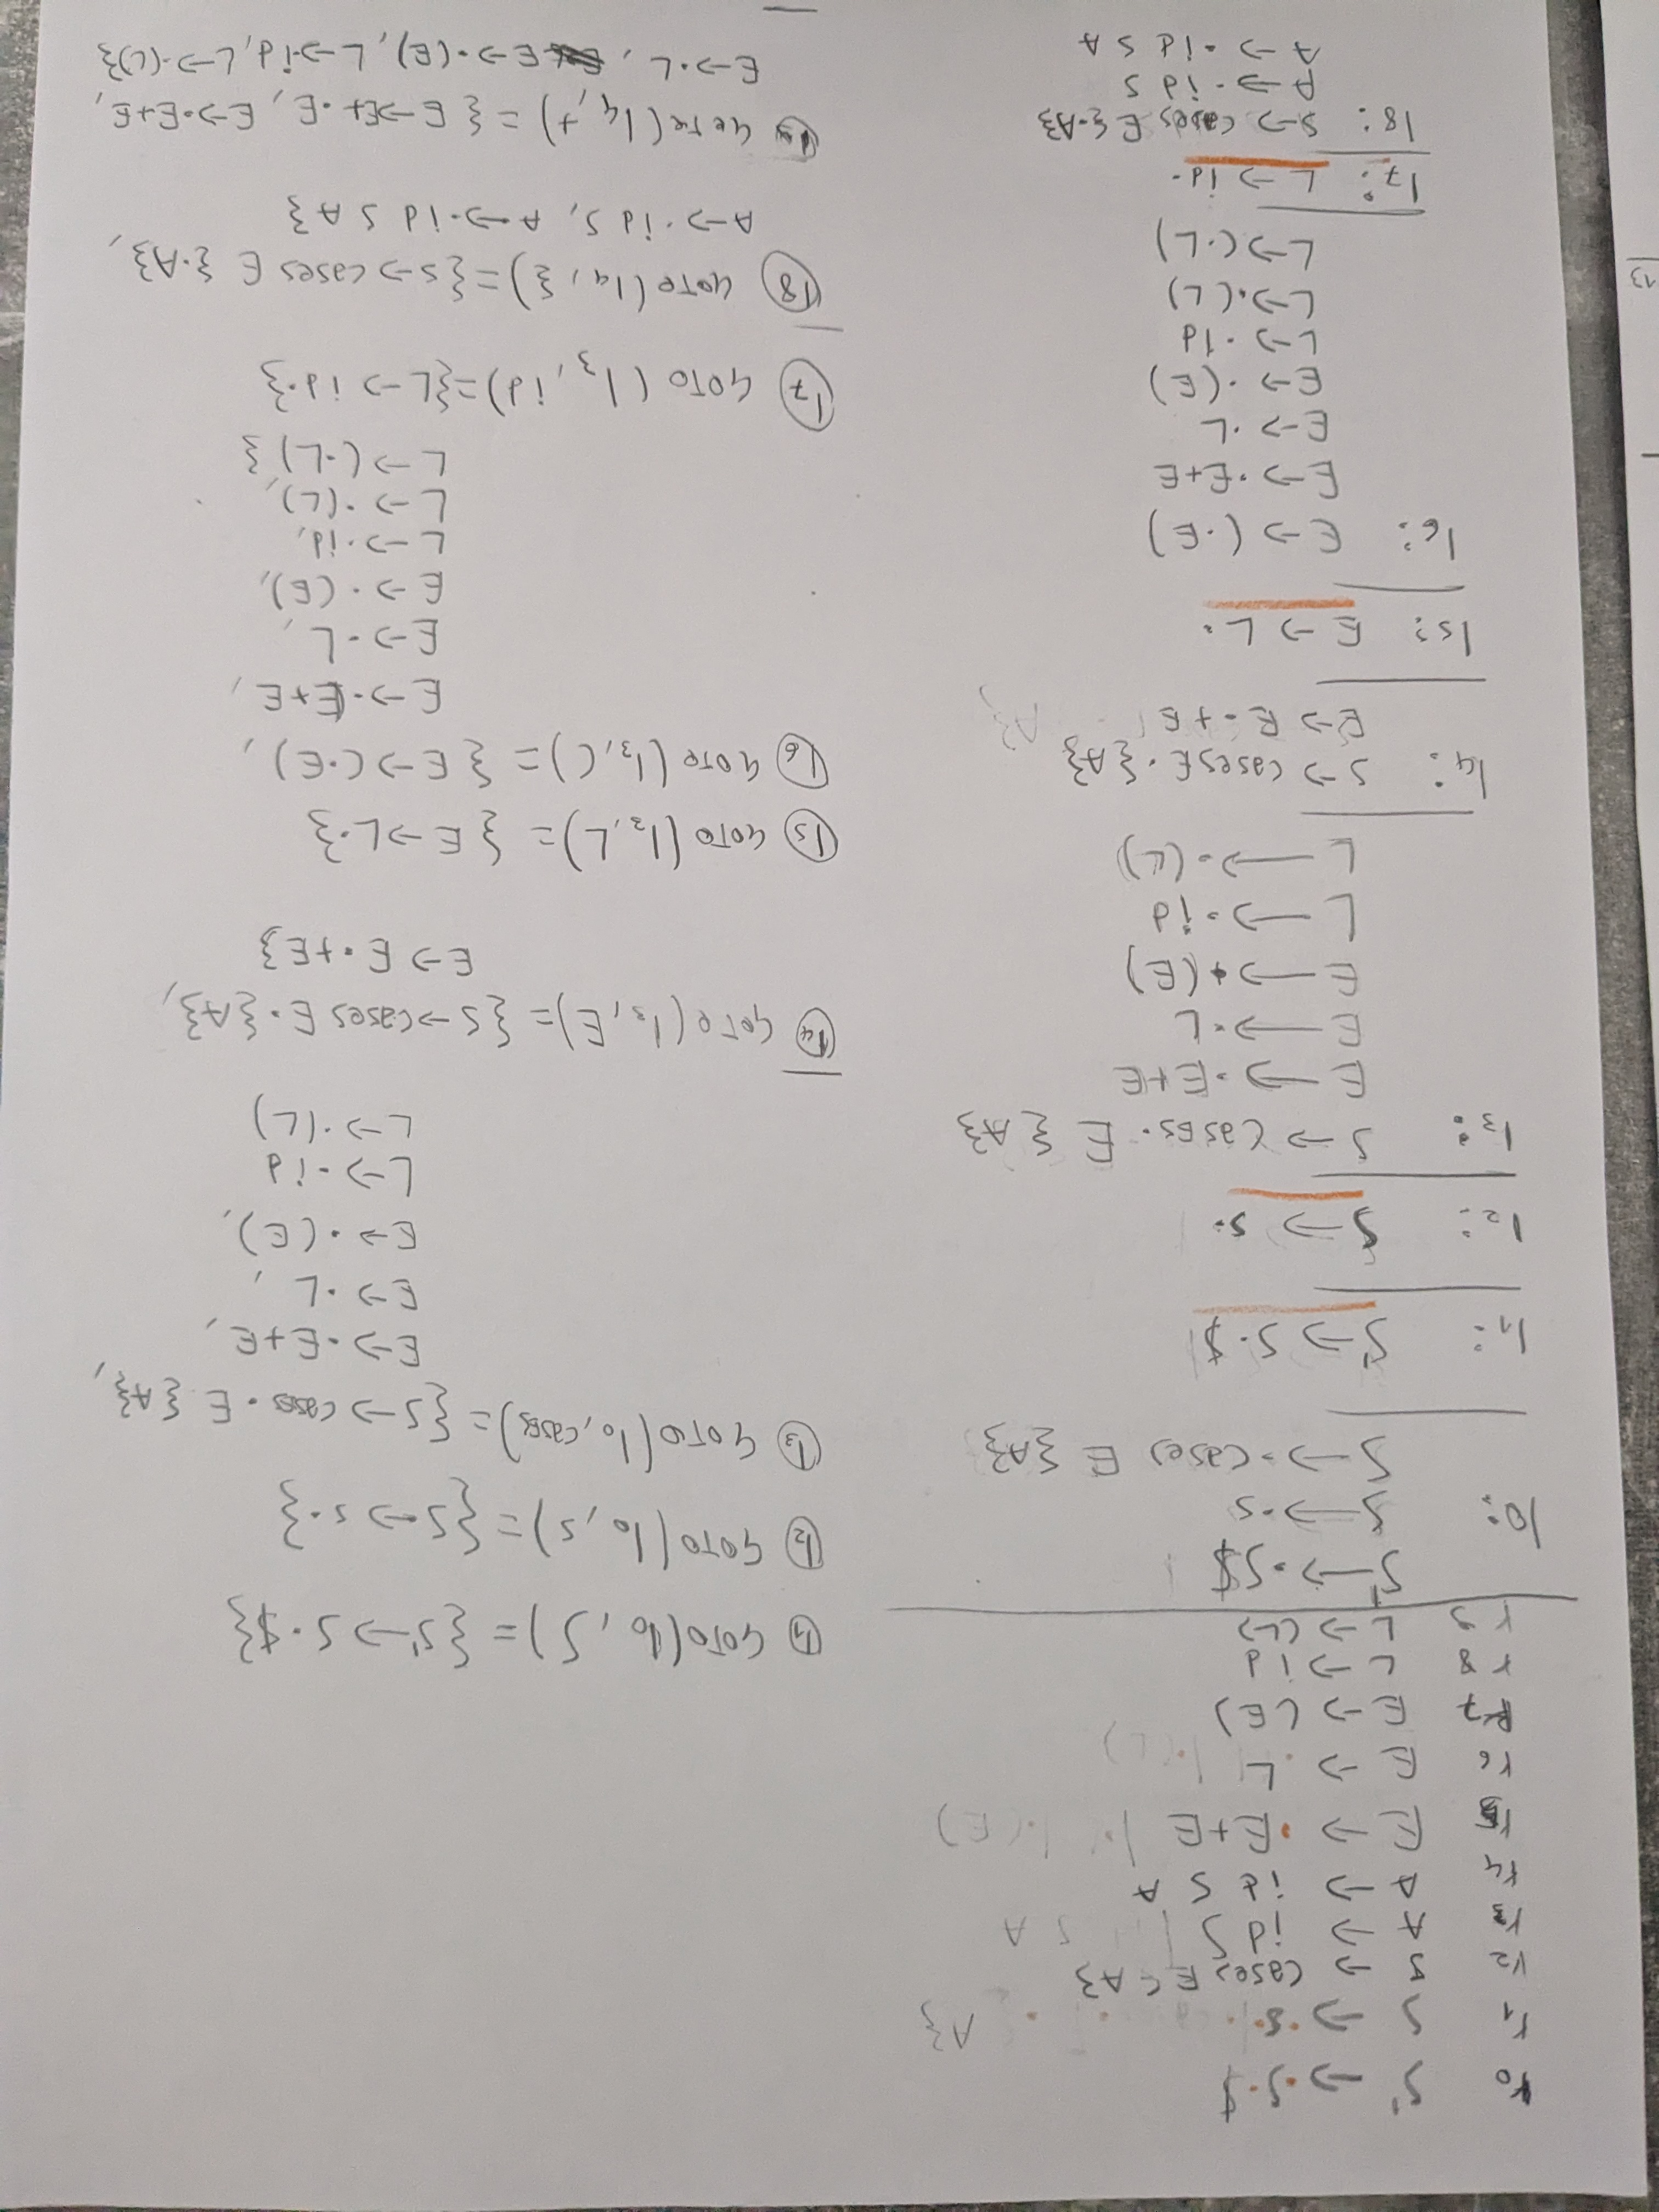 r0 S' → ·S·$
r1 S → ·s· A}
r2 S → cases E { A}
r3 A → id S | S A
r4 A → id S A
r5 E → ·E+E | · | ·(E)
r6 E → L | ·(L)
R7 E → (E)
r8 L → id
r9 L → (L)
S' → ·S$
I0: S → ·s
S → ·cases E {A}
I1: S' → S·$
I2: S → s·
I3: S → cases· E {A}
E → ·E+E
E → ·L
E → ·(E)
L → ·id
L → ·(L)
I4: S → cases E · {A}
E → E·+E
A}
I5: E → L·
I6: E → (·E)
E → ·E+E
E → ·L
E → ·(E)
L → ·id
L → ·(L)
L → (·L)
I7: L → id·
I8: S → cases E {·A}
A → ·id S
A → ·id S A
I1 GOTO(I0, S) = {S' → S·$}
I2 GOTO(I0, s) = {S → s·}
I3 GOTO(I0, cases) = {S → cases·E {A},
E → ·E+E,
E → ·L,
E → ·(E),
L → ·id
L → ·(L)
I4 GOTO(I3, E) = {S → cases E·{A},
E → E·+E}
I5 GOTO(I3, L) = {E → L·}
I6 GOTO(I3, () = {E → (·E),
E → ·E+E,
E → ·L,
E → ·(E),
L → ·id,
L → ·(L),
L → (·L)}
I7 GOTO(I3, id) = {L → id·}
I8 GOTO(I4, {) = {S → cases E {·A},
A → ·id S, A → ·id S A}
GOTO(I4, +) = {E → E+·E, E → ·E+E,
E → ·L, E → ·(E), L → ·id, L → ·(L)}
13